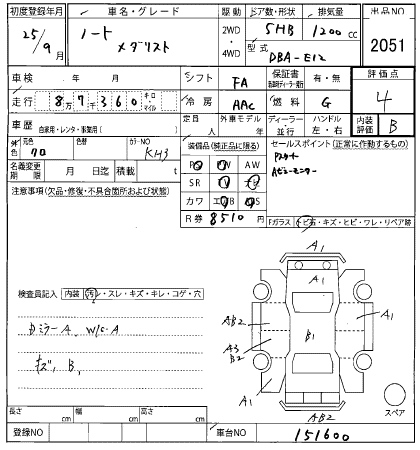 初度登録年月 車名・グレード 駆動 ドア数・形状 排気量 出品NO
25年 9月 ノート メダリスト 2WD・4WD 5HB 1200 cc 2051
型式 DBA-E12
車検 年 月 シフト FA 保証書 有・無 評価点
走行 8万7千360 キロ・マイル 冷房 AAC 燃料 G 4
車歴 自家用・レンタ・事業用( ) 定員 人 外車モデル 年 ディーラー 並行 ハンドル 左・右 内装評価 B
外色 元色 クロ 色替 カラーNO KH3 装備品(純正品に限る) セールスポイント(正常に作動するもの)
PS PW AW
Pスタート
名義変更期限 月 日迄 積載 t SR TV ナビ
Aビューモニター
注意事項(欠品・修復・不具合箇所および状態) カワ エアB ABS
R券 8510 円 Fガラス トビ石・キズ・ヒビ・ワレ・リペア跡
A1
A1
検査員記入 内装 汚レ・スレ・キズ・キレ・コゲ・穴
AB2 B1 A1
ドミラーA、W/C・A
A3
B2
キズ、B、
A1 スペア
AB2
長さ cm 幅 cm 高さ cm
登録NO 車台NO 151600